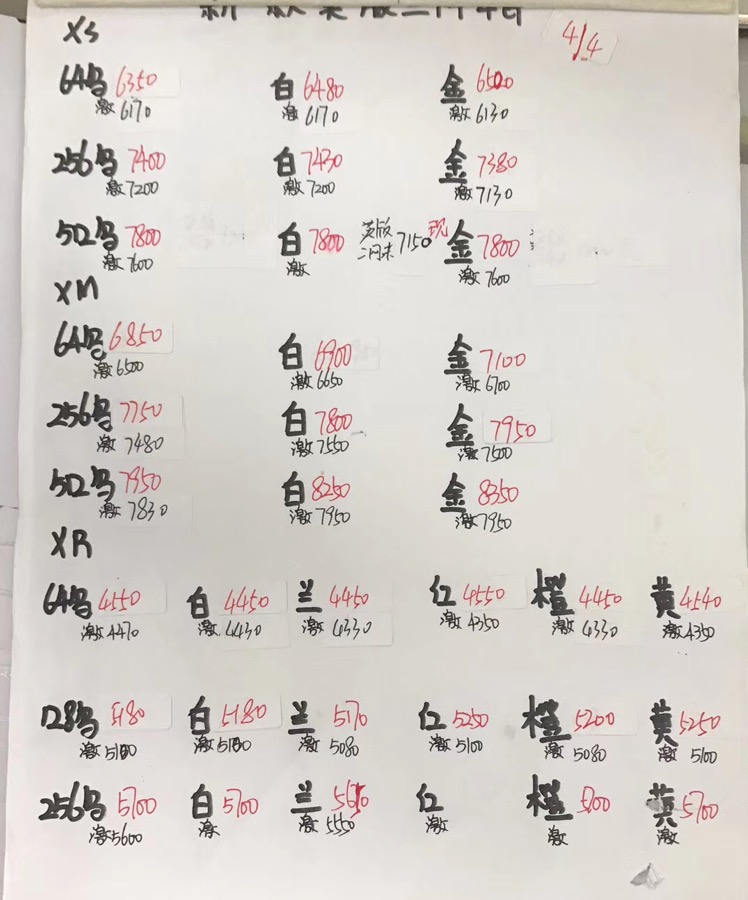 XS
4/4
64乌 6350 白 6480 金 6500
激 6170 激 6170 激 6130
256乌 7400 白 7430 金 7380
激 7200 激 7200 激 7130
512乌 7800 白 7800 英版 现 金 7800
激 7600 激 二网未 7150 激 7600
XM
64乌 6850 白 6900 金 7100
激 6500 激 6650 激 6700
256乌 7750 白 7800 金 7950
激 7480 激 7550 激 7500
512乌 7950 白 8250 金 8350
激 7830 激 7950 激 7950
XR
64乌 4550 白 4450 兰 4450 红 4550 橙 4450 黄 4540
激 4470 激 4430 激 4330 激 4350 激 4330 激 4350
128乌 5180 白 5180 兰 5170 红 5250 橙 5200 黄 5250
激 5100 激 5100 激 5080 激 5100 激 5080 激 5100
256乌 5700 白 5700 兰 红 橙 5700 黄 5700
激 5600 激 激 5550 激 激 激